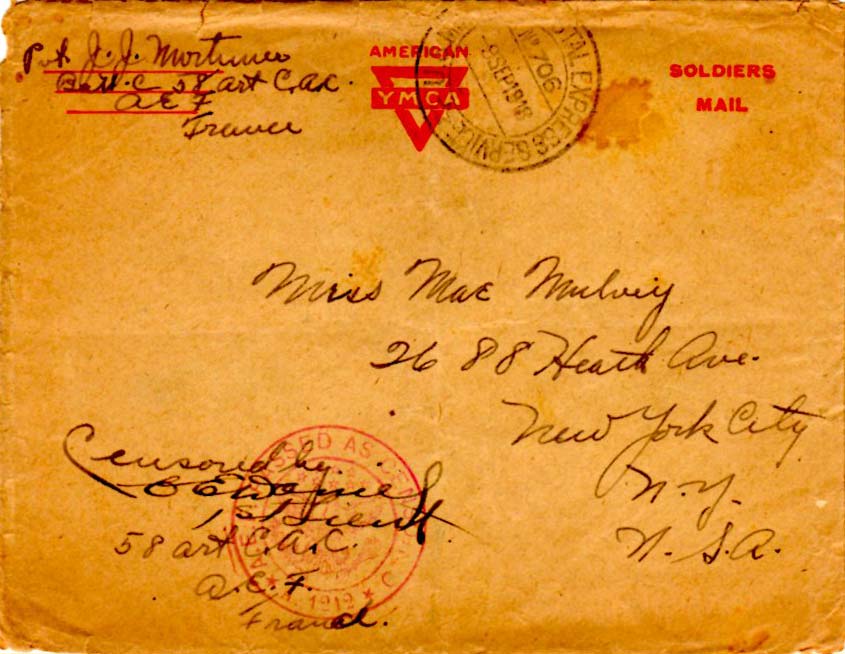 Pvt. J. J. Mortimer
Batt. C 58 art C.A.C.
A E F
France
AMERICAN
YMCA
POSTAL EXPRESS SERVICE
No 706
9 SEP 1918
SOLDIERS
MAIL
Miss Mae Mulvey
2688 Heath Ave.
New York City
N.Y.
U.S.A.
Censored by
1st Lieut
58 art C.A.C.
A.E.F.
France.
PASSED AS CENSORED
A. 1919